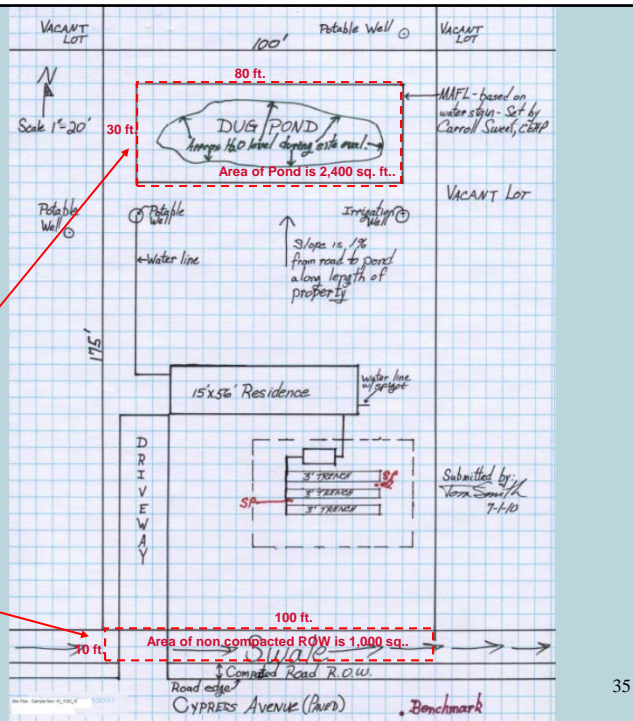 VACANT
LOT
Potable Well
VACANT
LOT
100'
N
Scale 1"=20'
80 ft.
30 ft.
DUG POND
Approx H2O level during site eval.
Area of Pond is 2,400 sq. ft..
MAFL - based on
water stain - Set by
Carroll Sweet, CEHP
VACANT LOT
Potable
Well
Potable
Well
Irrigation
Well
Water line
Slope is 1%
from road to pond
along length of
property
175'
15'x56' Residence
water line
w/ spigot
DRIVEWAY
3' TRENCH
3' TRENCH
3' TRENCH
SP
SP
Submitted by:
Tom Smith
7-1-10
100 ft.
10 ft.
Area of non compacted ROW is 1,000 sq..
Swale
Compated Road R.O.W.
Road edge
CYPRESS AVENUE (PAVED)
. Benchmark
35